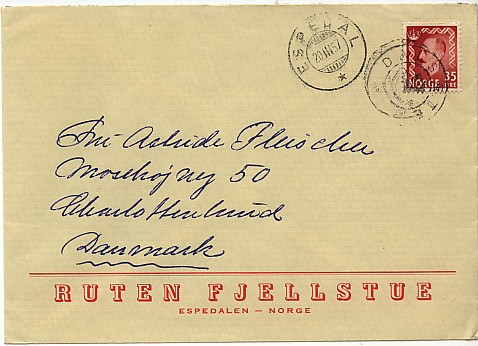 ESPEDAL
20 III 57
NORGE
35
ØRE
Fru Astride Fleischer
Mosehøjvej 50
Charlottenlund
Danmark
RUTEN FJELLSTUE
ESPEDALEN — NORGE